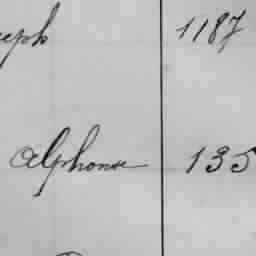 eph 1187
Alphonse 135